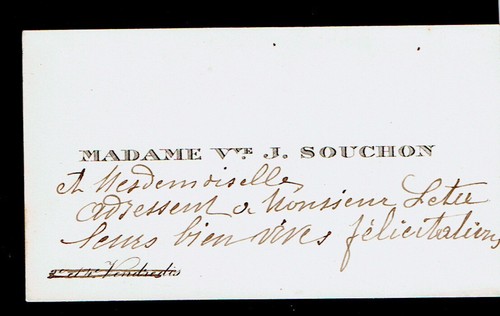 MADAME Vve J. SOUCHON
et Mesdemoiselles
adressent à Monsieur Letu
leurs bien vives félicitations
2e et 4e Vendredis